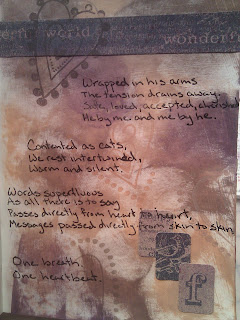 world wonderf
Wrapped in his arms
The tension drains away.
Safe, loved, accepted, cherished
He by me and me by he.
Contented as cats,
We rest intertwined,
Warm and silent.
Words superfluous
As all there is to say
Passes directly from heart to heart,
Messages passed directly from skin to skin
One breath.
One heartbeat.
f